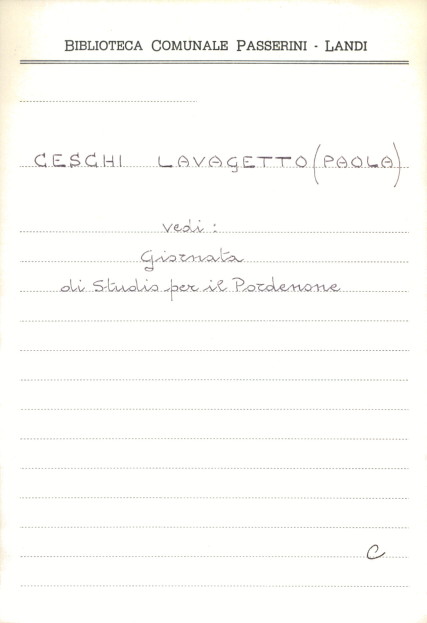 BIBLIOTECA COMUNALE PASSERINI - LANDI
CESCHI LAVAGETTO (PAOLA)
vedi :
Giornata
di Studio per il Pordenone
C